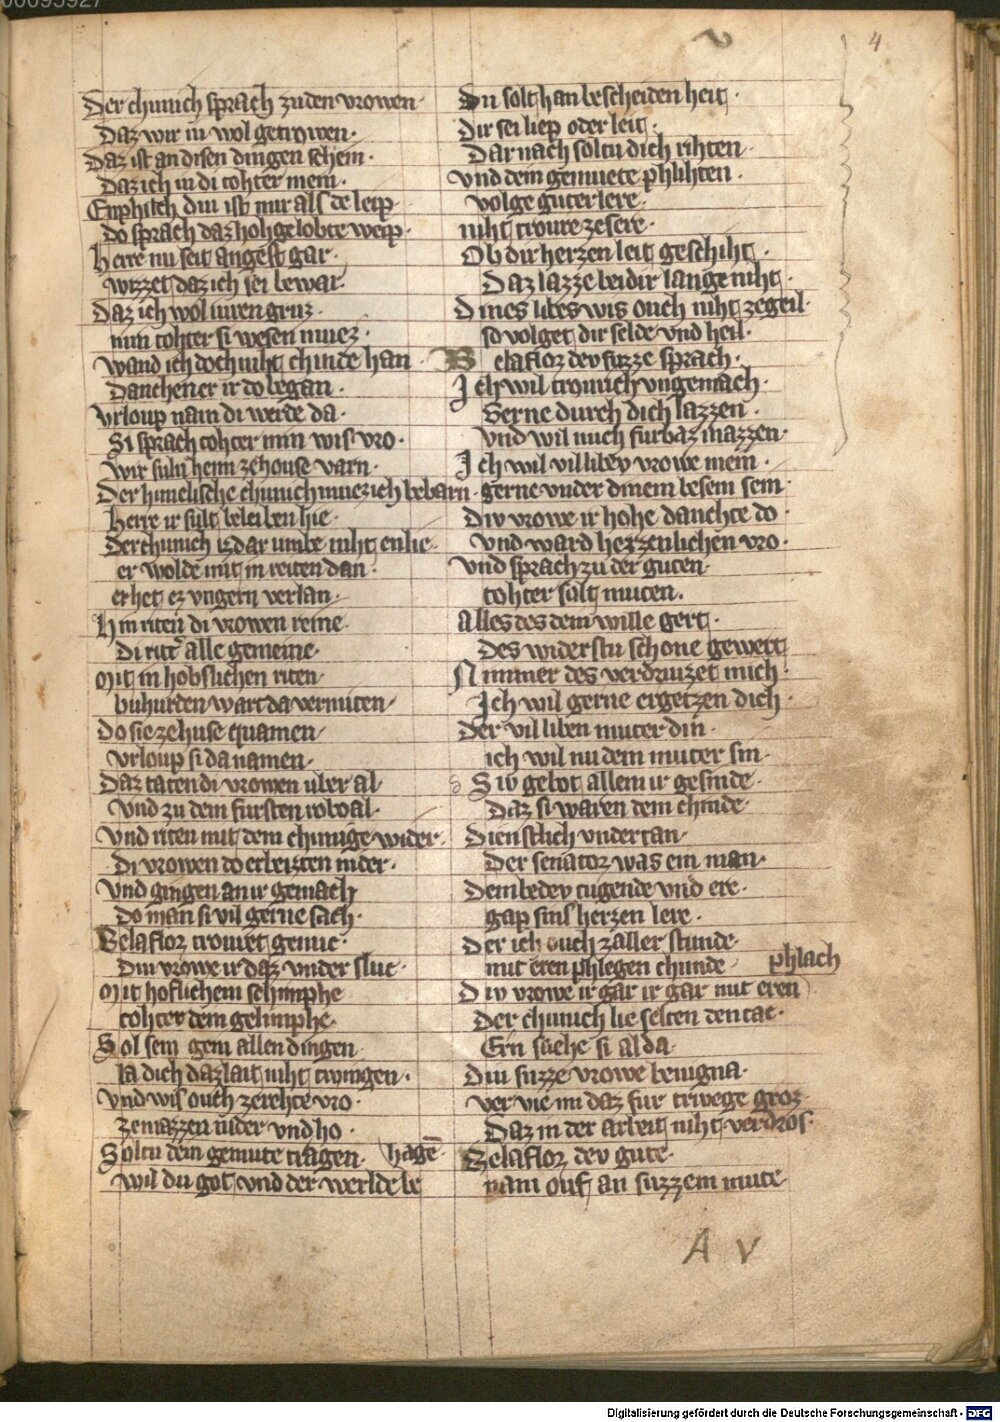 00095927
4
Der chunich sprach zu den vrowen
Daz wir iu wol getrowen.
Daz ist an disen dingen schein.
Daz ich iu di tohter mein.
Enphilch diu ist mir als de leip
Do sprach daz hohgelobte weip.
Herre nu seit angest gar.
wizzet daz ich sei bewar.
Daz ich wol iuren gruz.
min tohter si wesen muez.
wand ich doch niht chinde han
Danchener ir do began.
Vrloup nam di werde da.
Si sprach tohter min wis vro.
wir suln heim zehouse varn.
Der himelische chunich muez ich bebarn.
Herre ir sult beleiben hie.
Der chunich iz dar umbe niht enlie.
er wolde mit in reiten dan.
er het ez vngern verlan.
Hin riten di vrowen reine.
Di ritter alle gemeine.
Mit in hobslichen riten
buhurden wart da vermiten
Do sie zehuse quamen
vrloup si da namen.
Daz taten di vrowen uber al
Vnd zu dem fursten roboal.
Vnd riten mit dem chunige wider.
Di vrowen do erbeizten nider.
Vnd gingen an ir gemach
Do man si vil gerne sach.
Belaflor trouret genuc.
Diu vrowe ir daz under sluc.
Mit hoflichem schimphe
tohter dem gelimphe.
Sol sein gein allen dingen
la dich daz lait niht twingen.
Vnd wis ouch zerehte vro.
zemazzen nider vnd ho.
Soltu dein gemute tragen. hagē.
wil du got vnd der werlde be
Du solt han bescheidenheit.
Dir sei liep oder leit.
Dar nach soltu dich rihten
Vnd dein gemuete phlihten.
volge guter lere.
niht troure zesere.
Ob dir herzen leit geschiht.
Daz lazze bei dir lange niht.
Dines libes wis ouch niht zegeil.
so volget dir selde vnd heil.
Belaflor dev suzze sprach.
Ich wil trourich vngemach.
Gerne durch dich lazzen.
Vnd wil mich furbaz mazzen.
Ich wil vil libev vrowe mein.
gerne vnder dinem besem sein.
Div vrowe ir hohe danchte do.
Vnd ward herzenlichen vro.
Vnd sprach zu der guten.
tohter sult muten.
Alles des dein wille gert.
Des widerstu schone gewert
Nimmer des verdriuzet mich.
Ich wil gerne ergetzen dich.
Der vil liben muter din.
ich wil nu dein muter sin.
Siv gebot allem ir gesinde.
Daz si waren dem chinde.
Dienstlich vndertan.
Der senator was ein man.
Dem bedev tugende vnd ere.
gap sins herzen lere.
Der ich ouch zaller stunde
mit eren phlegen chunde phlach
Div vrowe ir gar ir gar mit eren
Der chunich lie selten den tac.
Ern suehe si alda.
Diu suzze vrowe benigna.
ver vie im daz fur triwege groz.
Daz in der arbeit niht verdros.
Belaflor dev gute.
nam ouf an suzzem mute
A V
Digitalisierung gefördert durch die Deutsche Forschungsgemeinschaft - DFG